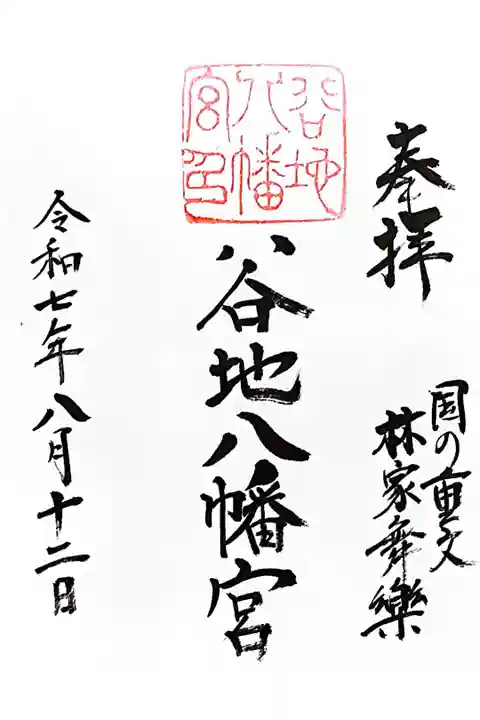 奉拝
国の重文
林家舞樂
谷地
八幡
宮印
谷地八幡宮
令和七年八月十二日